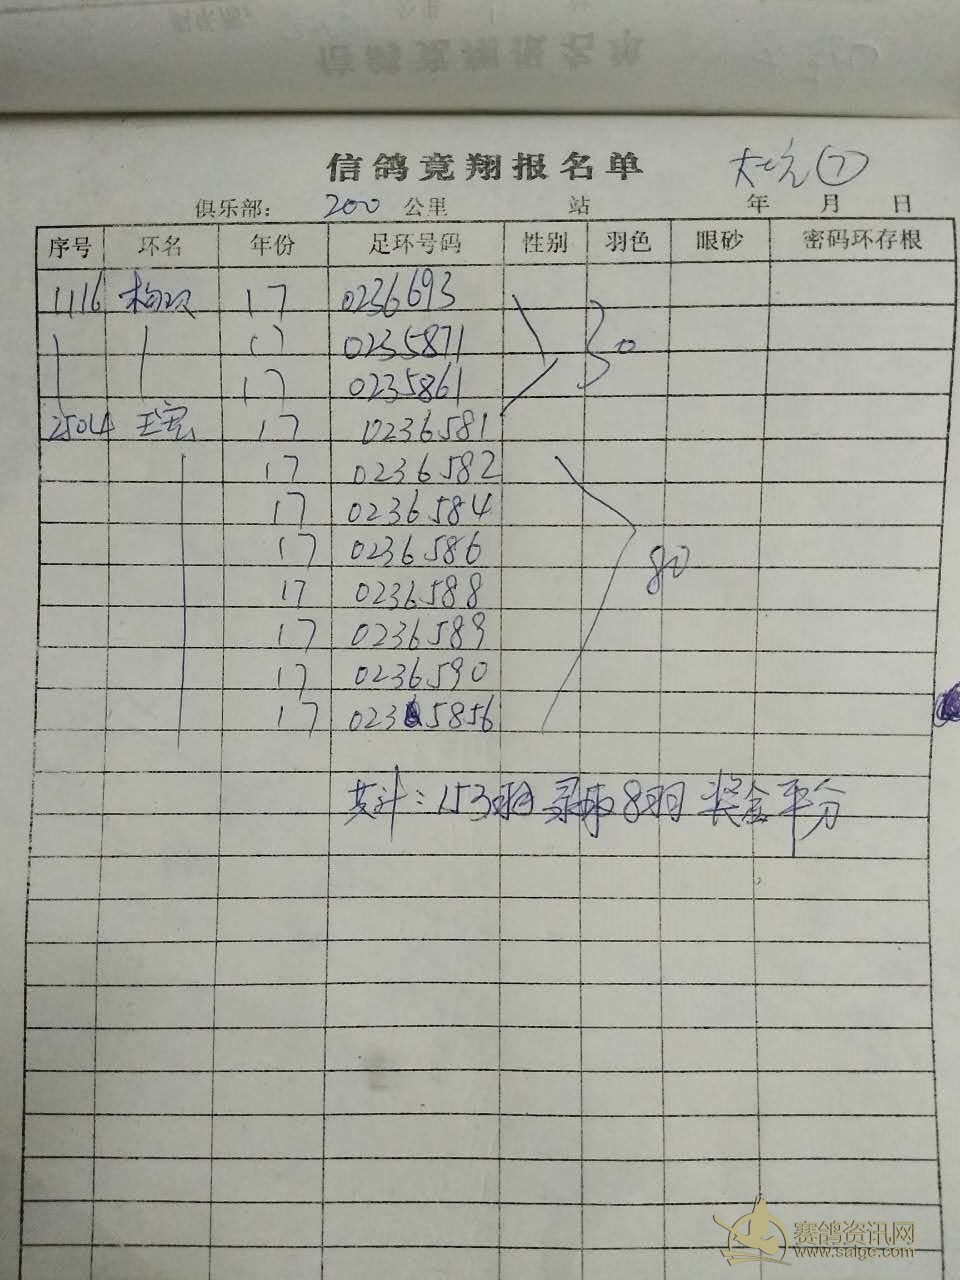 信鸽竞翔报名单 ⑦
俱乐部： 200 公里 站 年 月 日
序号 环名 年份 足环号码 性别 羽色 眼砂 密码环存根
1116 17 0236693
17 0235871 30
17 0235861
2504 王宏 17 0236581
17 0236582
17 0236584
17 0236586 80
17 0236588
17 0236589
17 0236590
17 0235856
共计：153羽 录取8羽 奖金平分
赛鸽资讯网
www.saigc.com